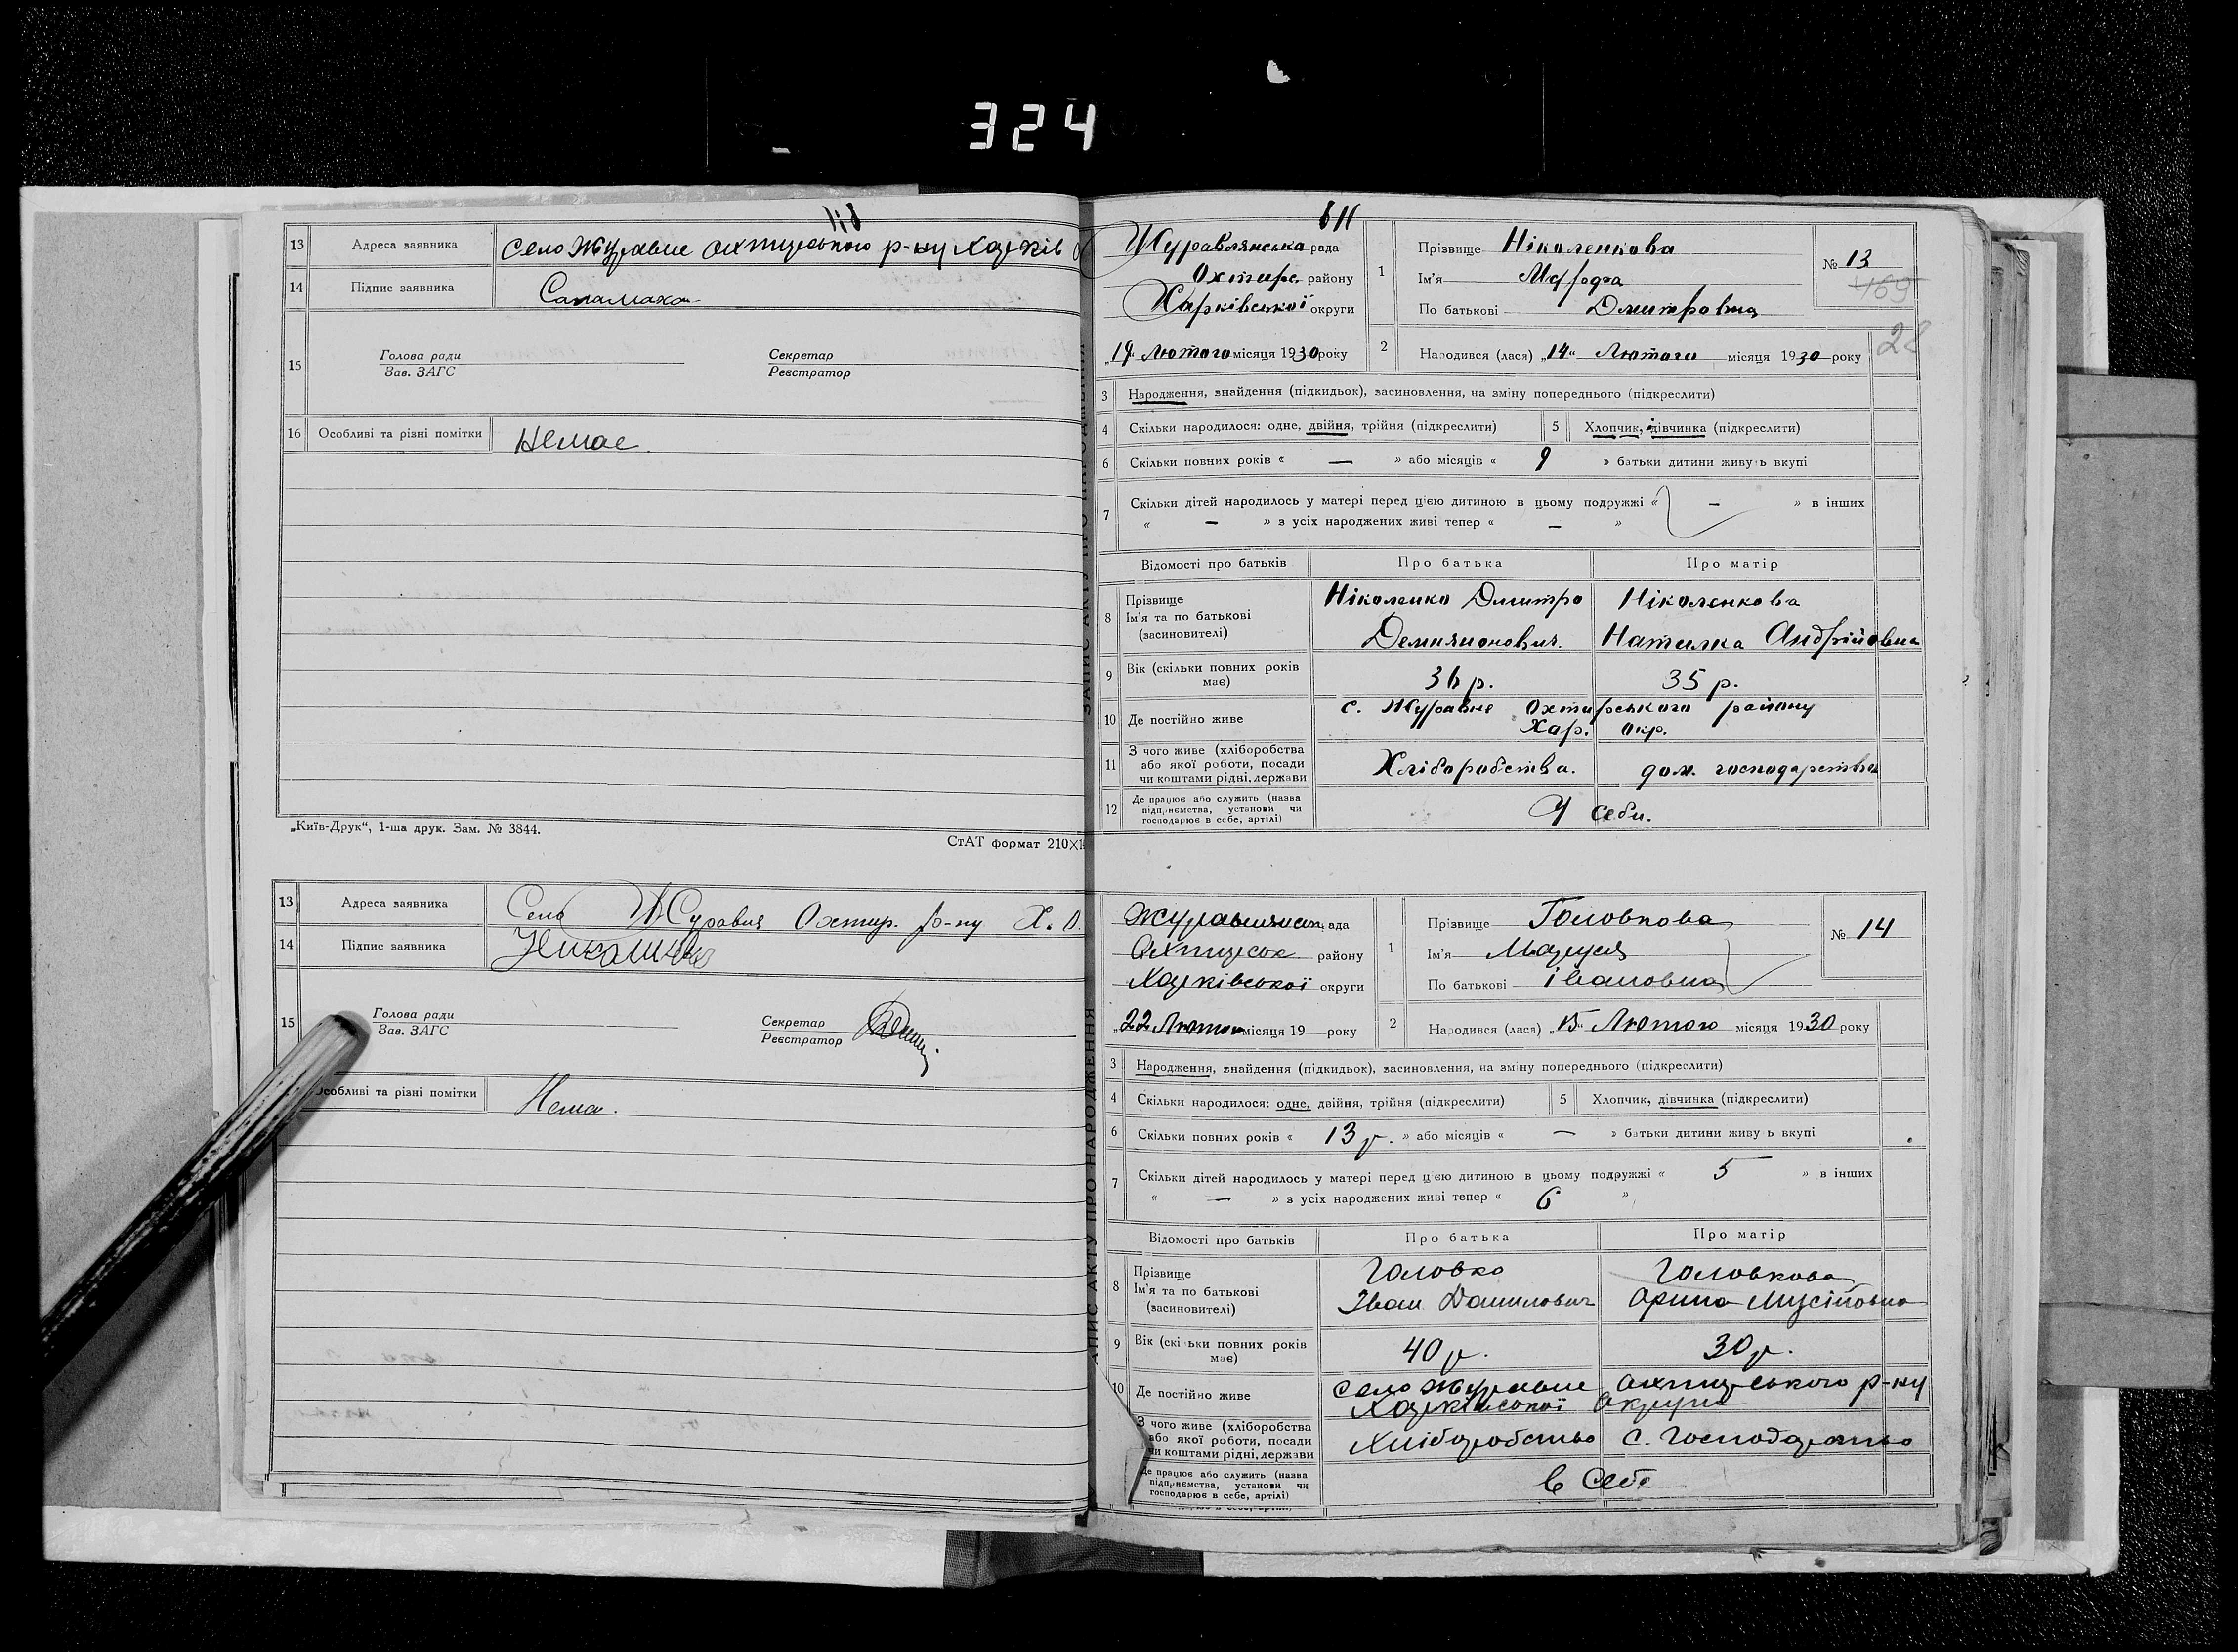 324
13 Адреса заявника Село Журавне Охтирського р-ну Харків
14 Підпис заявника Саламаха
15 Голова ради Секретар
Зав. ЗАГС Реєстратор
16 Особливі та різні помітки Немає.
„Київ-Друк“, 1-ша друк. Зам. № 3844.
СтАТ формат 210×1
13 Адреса заявника Село Журавня Охтир. р-ну Х. О.
14 Підпис заявника
15 Голова ради Секретар
Зав. ЗАГС Реєстратор
Особливі та різні помітки Нема.
ЗАПИС АКТУ ПРО НАРОДЖЕННЯ
Журавлянська рада
Охтирс. району
Харківської округи
„19“ Лютого місяця 1930 року
1 Прізвище Ніколенкова
Ім'я
По батькові Дмитровна
№ 13
469
28
2 Народився (лася) „14“ Лютого місяця 1930 року
3 Народження, знайдення (підкидьок), засиновлення, на зміну попереднього (підкреслити)
4 Скільки народилося: одне, двійня, трійня (підкреслити) 5 Хлопчик, дівчинка (підкреслити)
6 Скільки повних років « — » або місяців « 9 » батьки дитини живуть вкупі
7 Скільки дітей народилось у матері перед цією дитиною в цьому подружжі « — » в інших
« — » з усіх народжених живі тепер « — »
Відомості про батьків Про батька Про матір
8 Прізвище Ніколенко Дмитро Ніколенкова
Ім'я та по батькові
(засиновителі) Демянонович. Наталка Андрійовна
9 Вік (скільки повних років має) 36 р. 35 р.
10 Де постійно живе с. Журавне Охтирського району
Хар. окр.
11 З чого живе (хліборобства
або якої роботи, посади
чи коштами рідні, держави Хліборобства. дом. господарства
12 Де працює або служить (назва
підприємства, установи чи
господарює в себе, артілі) У себи.
АПИС АКТУ ПРО НАРОДЖЕННЯ
Журавлянськ. рада
Охтирськ району
Харківської округи
„22 Лютого місяця 19 — року
1 Прізвище Головкова
Ім'я Маруся
По батькові Івановна
№ 14
2 Народився (лася) „15“ Лютого місяця 1930 року
3 Народження, знайдення (підкидьок), засиновлення, на зміну попереднього (підкреслити)
4 Скільки народилося: одне, двійня, трійня (підкреслити) 5 Хлопчик, дівчинка (підкреслити)
6 Скільки повних років « 13 р. » або місяців « — » батьки дитини живу ь вкупі
7 Скільки дітей народилось у матері перед цією дитиною в цьому подружжі « 5 » в інших
« — » з усіх народжених живі тепер « 6 »
Відомості про батьків Про батька Про матір
8 Прізвище Головко Головкова
Ім'я та по батькові Іван Данилович Орина Мусійовна
(засиновителі)
9 Вік (скі ьки повних років має) 40 р. 30 р.
10 Де постійно живе Село Журавне Охтирського р-ну
Харківської Округи
З чого живе (хліборобства
або якої роботи, посади
чи коштами рідні, держави Хліборобство С. Господарство
Де працює або служить (назва
підприємства, установи чи
господарює в себе, артілі) в Себе